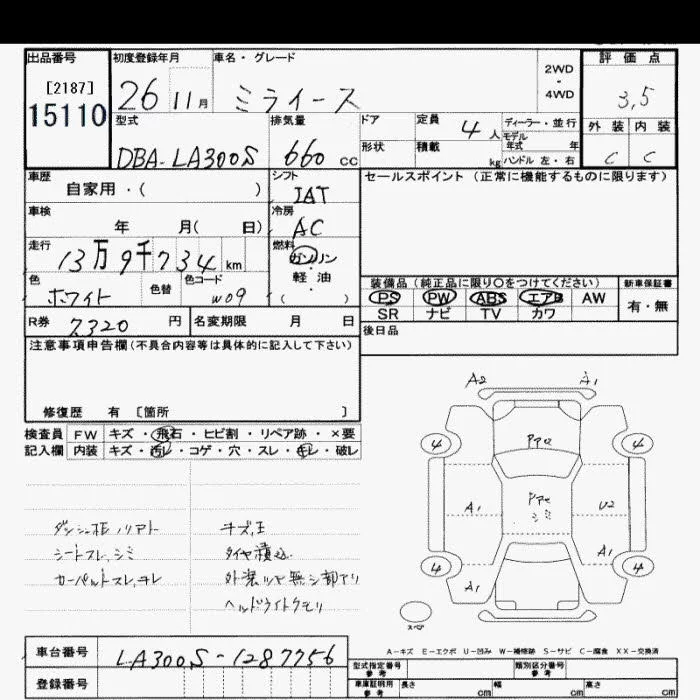 出品番号 初度登録年月 車名・グレード 2WD・4WD 評価点
[2187]
15110
26 11月 ミライース 3,5
型式 排気量 ドア 定員 4人 ディーラー・並行 外装 内装
モデル年式 年
DBA-LA300S 660cc 形状 積載 kg ハンドル 左・右 C C
車歴 シフト セールスポイント(正常に機能するものに限ります)
自家用・( ) IAT
車検 冷房
年 月( 日) AC
走行 燃料
13万9千734km ガソリン・軽油
色 色替 色コード ( )
ホワイト W09
装備品(純正品に限り○をつけてください) 新車保証書
PS PW ABS エアB AW 有・無
SR ナビ TV カワ
R券 7320円 名変期限 月 日
後日品
注意事項申告欄(不具合内容等は具体的に記入して下さい)
修復歴 有 [箇所 ]
検査員 FW キズ・飛石・ヒビ割・リペア跡・×要
記入欄 内装 キズ・汚レ・コゲ・穴・スレ・キレ・破レ
A2 A1
4 PPa 4
A1 PPa シミ U2
4 A1 4
A1
スペア
シートスレ,シミ タイヤ積込
カーペットスレ,キレ 外装ツヤ無シ部アリ
ヘッドライトクモリ
A-キズ E-エクボ U-凹み W-補修跡 S-サビ C-腐食 XX-交換済
車台番号 LA300S-1287756
登録番号
型式指定番号 参考 類別区分番号 参考
車庫証明用 参考 長さ cm 幅 cm 高さ cm